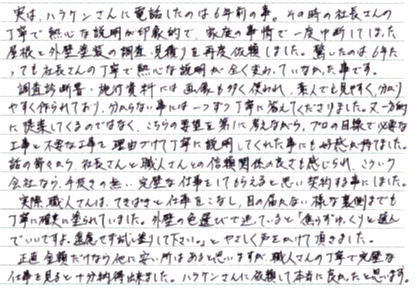 実は、ハラケンさんに電話したのは6年前の事。その時の社長さんの
丁寧で熱心な説明が印象的で、家庭の事情で一度中断してしまった
屋根と外壁塗装の調査、見積りを再度依頼しました。驚いたのは6年た
っても社長さんの丁寧で熱心な説明が全く変わっていなかった事です。
調査診断書・施行資料には画像も多く使われ、素人でも見やすく、分かり
やすく作られており、分からない事には一つずつ丁寧に答えてくださりました。又一方的
に提案してくるのではなく、こちらの要望を第1に考えながら、プロの目線で必要な
工事と不要な工事を理由づけて丁寧に説明してくれた事にも好感が持てました。
話の節々から社長さんと職人さんとの信頼関係の良さも感じられ、こういう
会社なら、手抜きの無い完璧な仕事をしてもらえると思い契約する事にしました。
実際、職人さんは、てきぱきと仕事をこなし、目の届かない様な裏側までも
丁寧に確実に塗られていました。外壁の色選びで迷っていると「焦らずゆっくりと選ん
でいいですよ。遠慮せず試し塗りして下さい。」とやさしく声をかけて頂きました。
正直金額だけなら他に安い所はあると思いますが、職人さんの丁寧で完璧な
仕事を見ると十分納得出来ました。ハラケンさんに依頼して本当に良かったと思います。